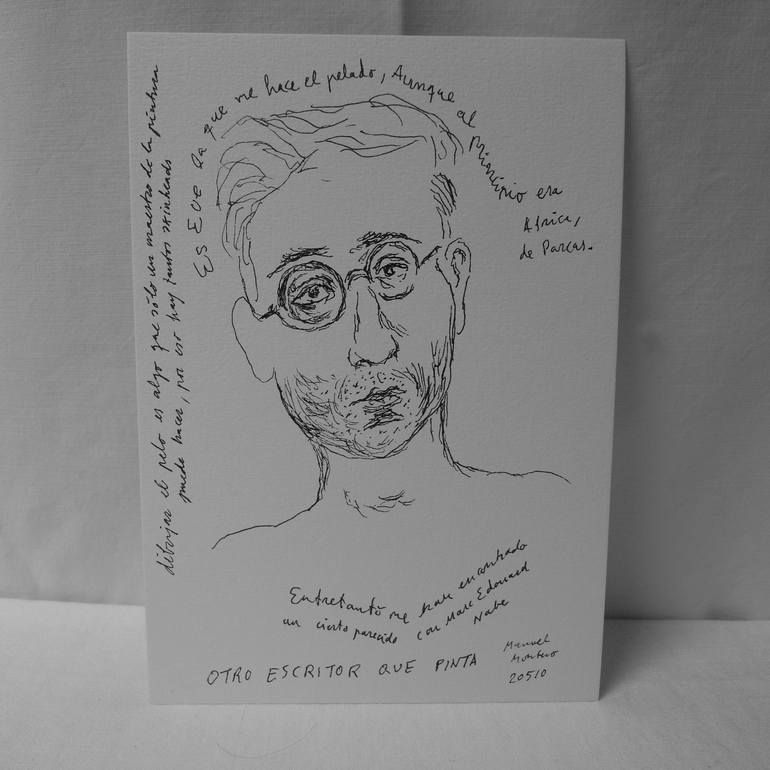 dibujar el pelo es algo que sólo un maestro de la pintura
puede hacer, por eso hay tantos skinheads
Es Eve la que me hace el pelado, Aunque al Principio era
Africa,
de Parcas.
Entretanto me han encontrado
un cierto parecido con Marc Edouard
Nabe
OTRO ESCRITOR QUE PINTA
Manuel
Montero
20510